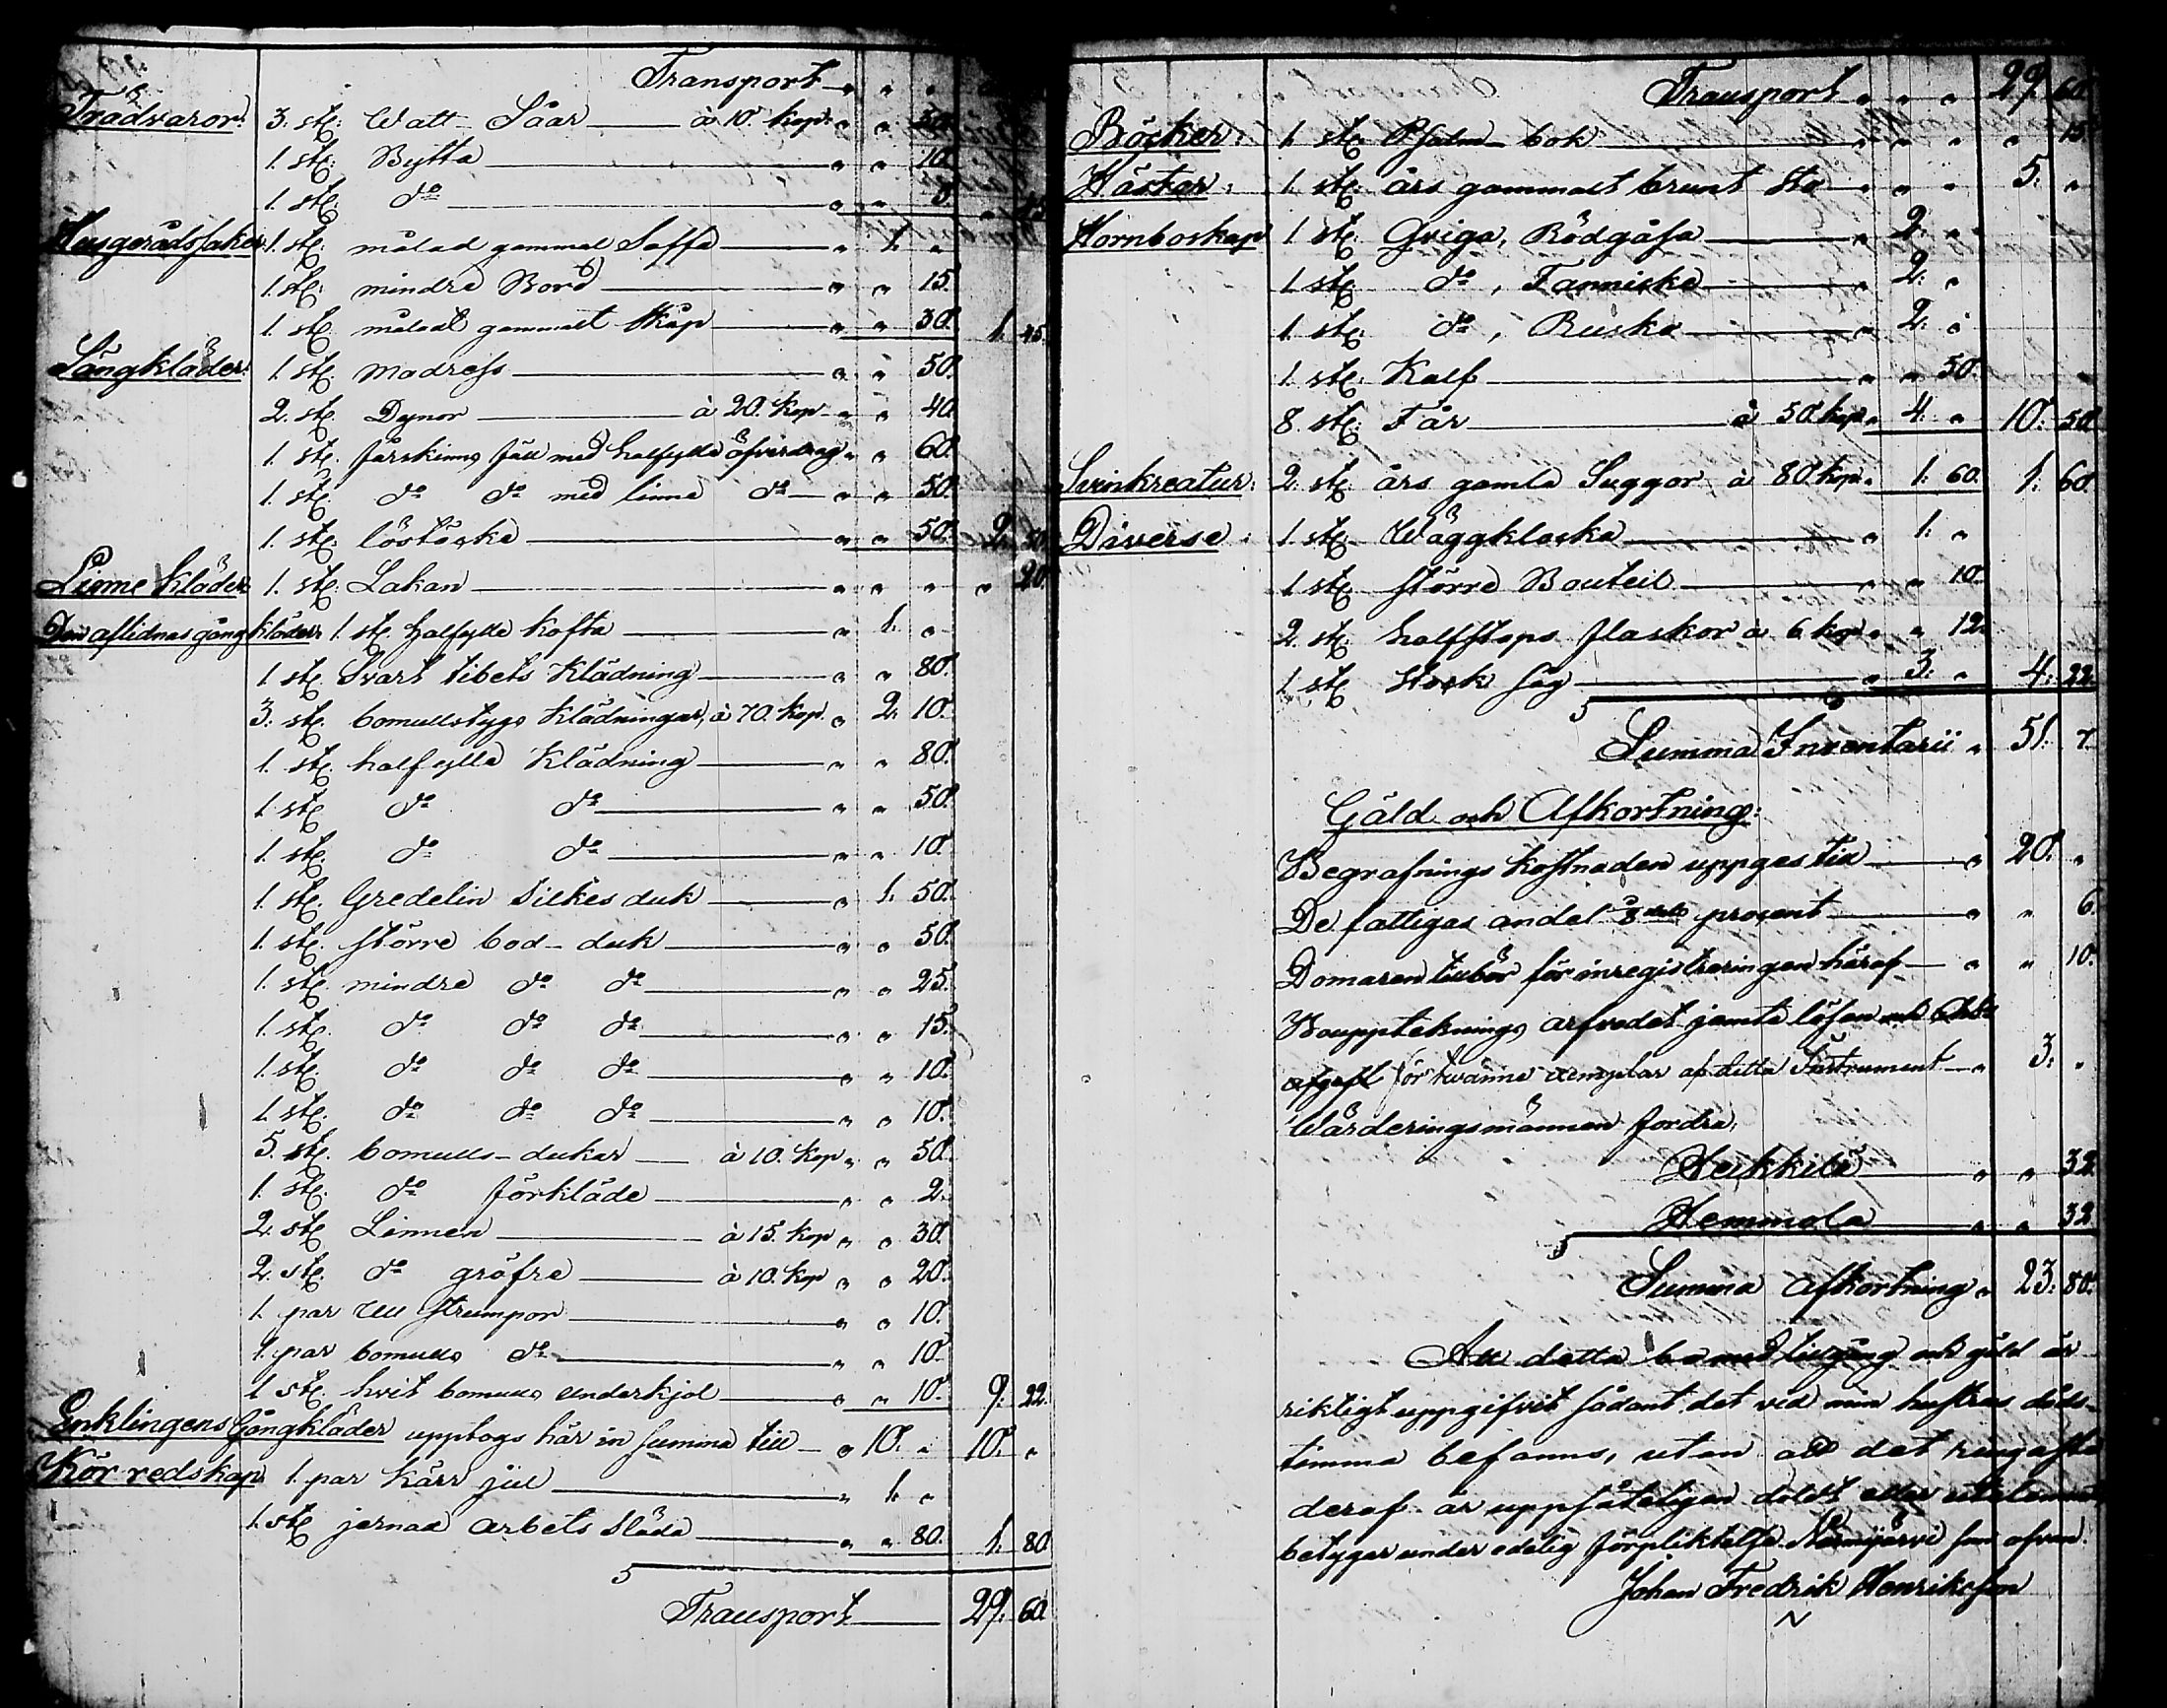 Transport „ „ „
Trädvaror: 3. st: Watt- Såar à 10. kop: „ „ 30.
1. st: Bytta „ „ 10.
1. st: do „ „ 5. „ 45.
Husgerådssaker 1. st: målad gammal Soffa „ 1. „
1. st: mindre Bord „ „ 15.
1. st: måladt gammalt Skåp „ „ 30. 1. 45.
Sängkläder: 1. st: Madrass „ „ 50.
2. st. Dynor à 20. kop „ „ 40.
1. st. fårskinns fäll med halfylle öfverdrag „ „ 60.
1. st: do do med linne do „ „ 50.
1. st: löstäcke „ „ 50. 2. 50.
Linne kläder 1. st: Lakan „ „ „ „ 20.
Den aflidnas gångkläder: 1. st. halfylle kofta „ 1. „
1. st. Svart tibets Klädning „ „ 80.
3. st. bomullstygs Klädningar, à 70. kop. „ 2. 10.
1. st. halfylle Klädning „ „ 80.
1. st. do do „ „ 50.
1. st. do do „ „ 10.
1. st. Gredelin silkes duk „ 1. 50.
1. st. större bod- duk „ „ 50.
1. st. mindre do do „ „ 25.
1. st. do do do „ „ 15.
1. st. do do do „ „ 10.
1. st. do do do „ „ 10.
5. st. bomulls- dukar à 10. kop „ „ 50.
1. st. do förkläde „ „ 2.
2. st. Linnen à 15. kop „ „ 30.
2. st. do gröfre à 10. kop „ „ 20.
1. par Ull strumpor „ „ 10.
1. par bomulls do „ „ 10.
1. st. hvit bomulls underkjol „ „ 10. 9. 22.
Enklingens Gångkläder upptogs här in summa till „ 10. „ 10. „
Kör redskap 1. par Kärr jul „ 1. „
1. st. jernad arbets släda „ „ 80. 1. 80.
Transport 29. 60.
Transport „ „ „ 29. 60.
Böcker: 1. st. Psalm- bok „ „ „ „ 15.
Hästar: 1. st. års gammalt brunt Sto „ „ „ 5: „
Hornboskap 1 st. Qviga, Rödgåsa „ 2: „
1 st. do, Tanniska „ 2: „
1. st. do, Ruska „ 2: „
1. st. Kalf „ „ 50.
8. st. Får à 50. kop „ 4. „ 10: 50.
Svinkreatur: 2. st. års gamla Suggor à 80. kop „ 1: 60. 1: 60.
Diverse: 1. st. Wäggklocka „ 1. „
1 st. större Bouteil „ „ 10.
2. st. halfstops flaskor à 6. kop „ „ 12.
1 st. Stock såg „ 3: „ 4: 22.
Summa Inventarii „ 51. 7.
Gäld och Afkortning:
Begrafnings kostnaden uppges till „ 20. „
De fattigas andel 8dels procent „ „ 6.
Domaren tillkör för inregistreringen häraf „ „ 10.
Bouppteknings arfvodet jemte lösen och
afgift för tvänne exemplar af detta Instrument „ 3: „
Wärderingsmännen fordra,
Heikkilä „ „ 32.
Hemmola „ „ 32.
Summa Afkortning „ 23: 80.
Att detta bo med tillgång och gäld är
riktigt uppgifvit sådant det vid min hustrus döds-
timma befanns, utan att det ringaste
deraf är uppsåteligen doldt eller utelemnat
betygar under edelig förpliktelse. som ofvan.
Johan Fredrik Henriksson